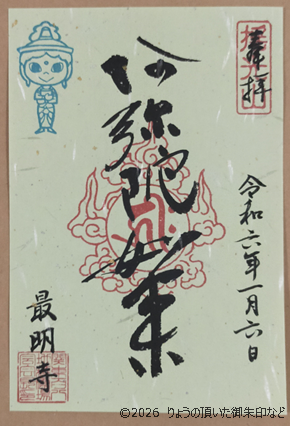 奉拝
令和六年一月六日
阿弥陀如来
最明寺
©2026 りょうの頂いた御朱印など